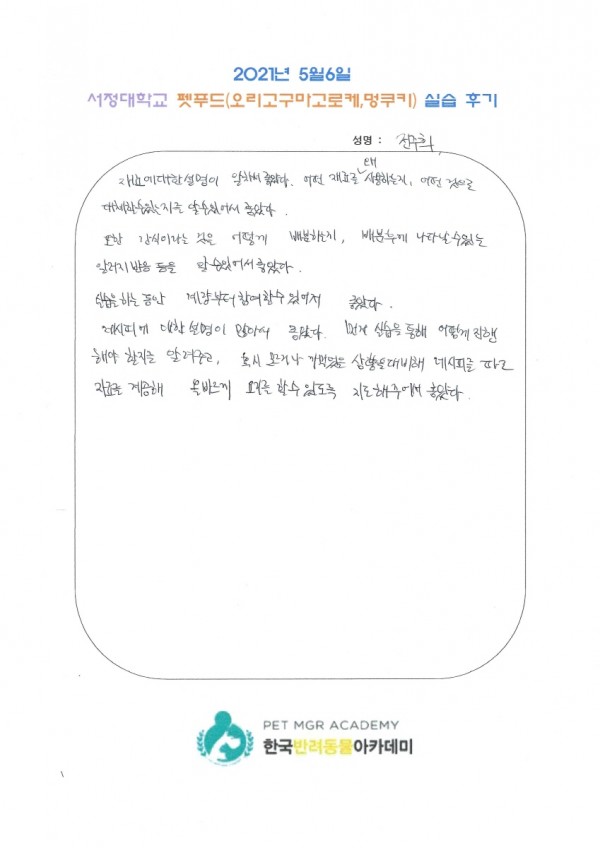 2021년 5월6일
서정대학교 펫푸드(오리고구마고로케,멍쿠키) 실습 후기
성명 : 전주희
왜
재료에대한설명이 알차서 좋았다. 어떤 재료를 사용하는지, 어떤 것으로
대체할수있는지를 알수있어서 좋았다.
또한 간식이라는 것은 어떻게 배분하는지, 배분후에 나타날수있는
알러지 반응 등을 알 수있어서 좋았다.
실습을하는 동안 계량부터 참여할수 있어서 좋았다.
레시피에 대한 설명이 많아서 좋았다. 먼저 실습을 통해 어떻게 진행
해야 할지를 알려주고, 혹시 모르거나 까먹었을 상황을대비해 레시피를 따로
자료로 제공해 올바르게 요리를 할수 있도록 지도해주어서 좋았다.
PET MGR ACADEMY
한국반려동물아카데미